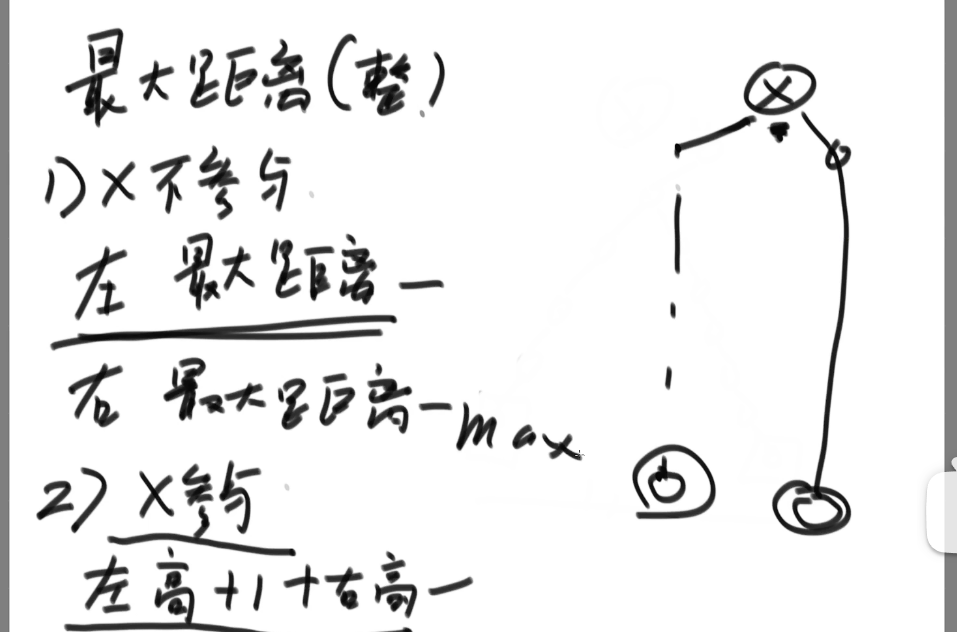 最大距离(整)
1) X不参与
左 最大距离
右 最大距离 max
2) X参与
左高+1+右高
X